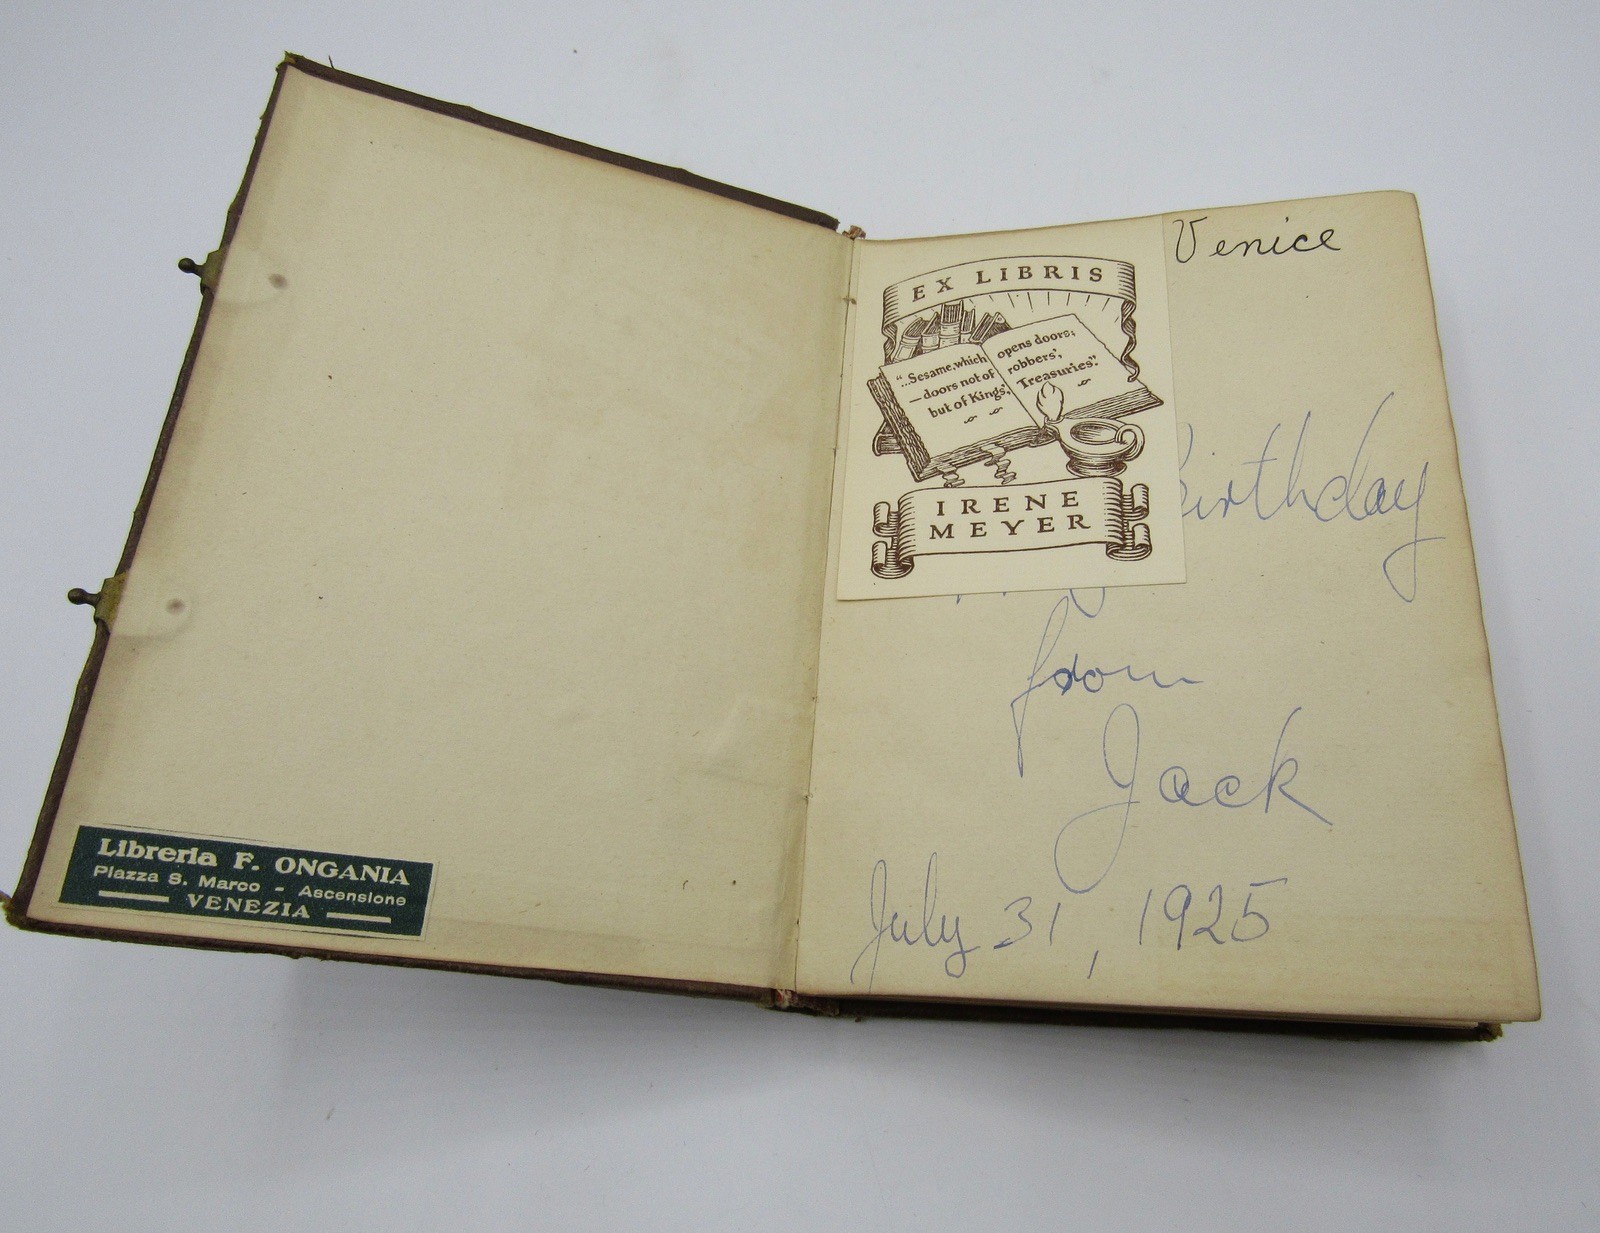 Venice
EX LIBRIS
"...Sesame, which
opens doors;
—doors not of
robbers',
but of Kings',
Treasuries".
IRENE
MEYER
Birthday
from
Jack
July 31, 1925
Libreria F. ONGANIA
Piazza S. Marco - Ascensione
VENEZIA